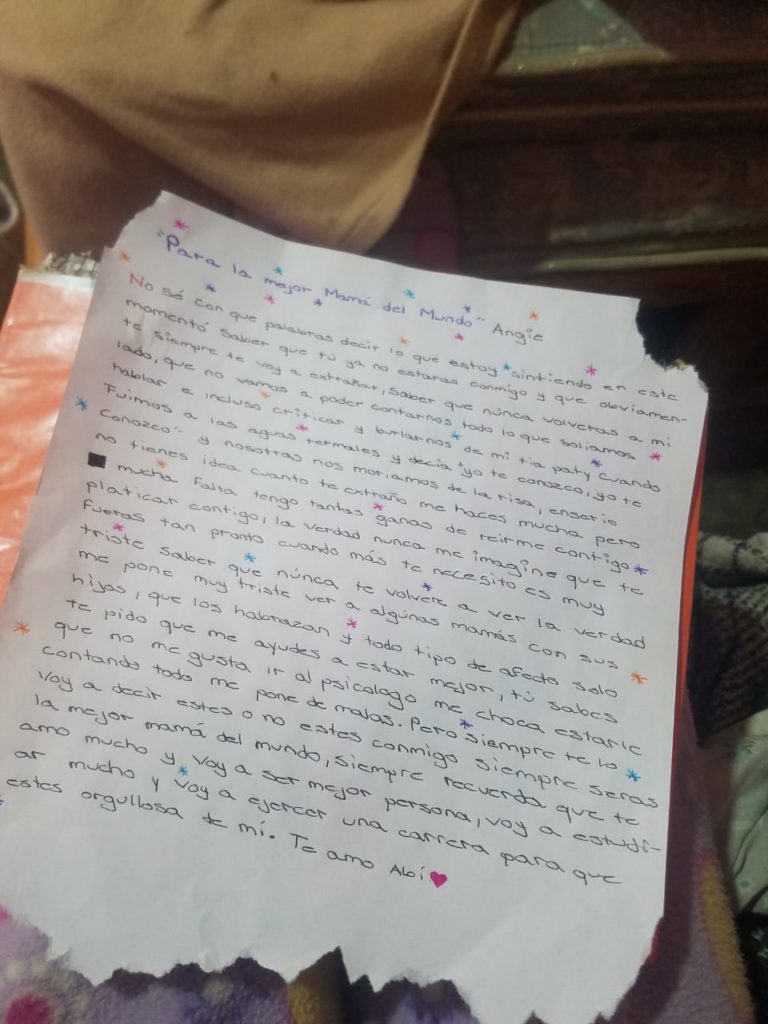 "Para la mejor Mamá del Mundo" Angie
No sé con que palabras decir lo que estoy sintiendo en este
momentó saber que tú ya no estaras conmigo y que obviamen-
te siempre te voy a extrañar, saber que núnca volveras a mi
lado, que no vamos a poder contarnos todo lo que soliamos
hablar e incluso criticar y burlarnos de mi tia paty cuando
Fuimos a las aguas termales y decia "yo te conozco, yo te
conozco" y nosotras nos moriamos de la risa, enserio
no tienes idea cuanto te extraño me haces mucha pero
mucha falta tengo tantas ganas de reirme contigo
platicar contigo, la verdad nunca me imagine que te
fueras tan pronto cuando más te necesito es muy
triste saber que núnca te volvere a ver la verdad
me pone muy triste ver a algúnas mamás con sus
hijas, que los habrazan y todo tipo de afecto solo
te pido que me ayudes a estar mejor, tú sabes
que no me gusta ir al psicologo me choca estarle
contando todo me pone de malas. Pero siempre te lo
voy a decir estes o no estes conmigo siempre seras
la mejor mamá del mundo, siempre recuerda que te
amo mucho y voy a ser mejor persona, voy a estudi-
ar mucho y voy a ejercer una carrera para que
estes orgullosa de mí. Te amo Abi